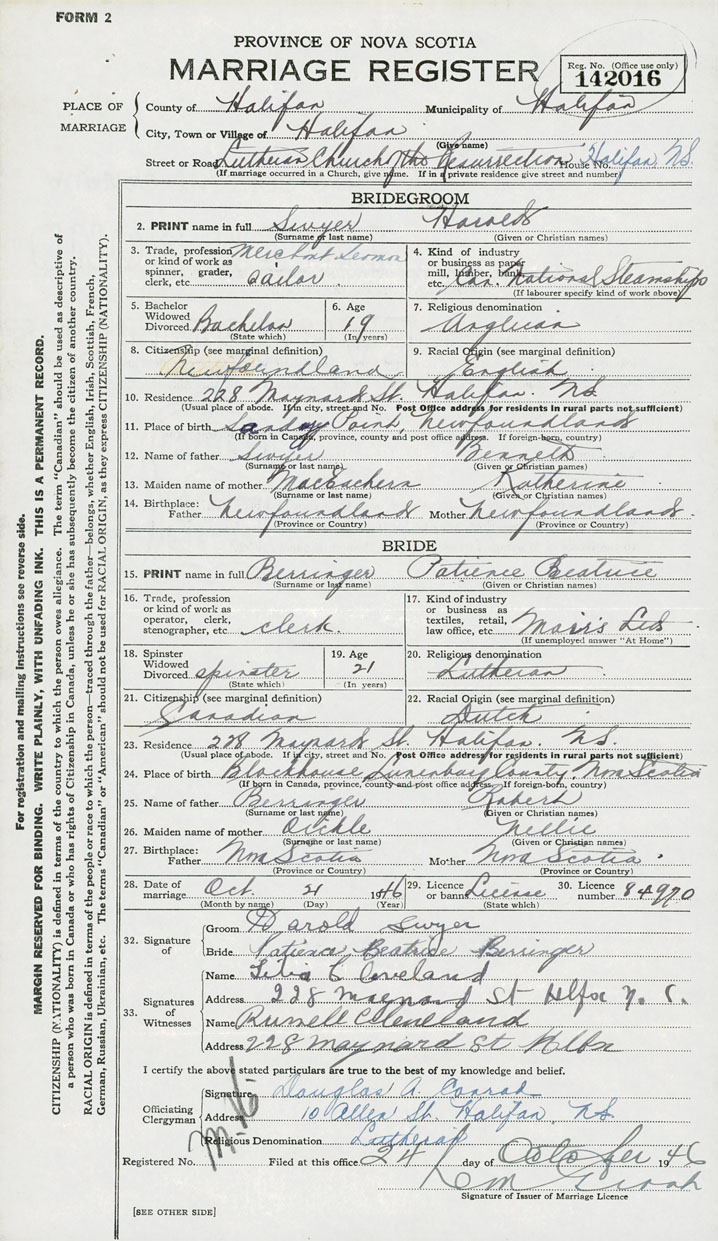 FORM 2
PROVINCE OF NOVA SCOTIA
MARRIAGE REGISTER
Reg. No. (Office use only)
142016
PLACE OF MARRIAGE
County of Halifax Municipality of Halifax
City, Town or Village of Halifax
(Give name)
Street or Road Lutheran Church of the Resurrection House No. Halifax, N.S.
(If marriage occurred in a Church, give name. If in a private residence give street and number)
BRIDEGROOM
2. PRINT name in full Swyer Harold
(Surname or last name) (Given or Christian names)
3. Trade, profession or kind of work as spinner, grader, clerk, etc. Merchant Seaman Sailor
4. Kind of industry or business as paper mill, lumber, bank, etc. Can. National Steamships
(If labourer specify kind of work above)
5. Bachelor Widowed Divorced Bachelor
(State which)
6. Age 19
(In years)
7. Religious denomination
Anglican
8. Citizenship (see marginal definition)
Newfoundland
9. Racial Origin (see marginal definition)
English
10. Residence 228 Maynard St. Halifax. N.S.
(Usual place of abode. If in city, street and No. Post Office address for residents in rural parts not sufficient)
11. Place of birth Sandy Point, Newfoundland
(If born in Canada, province, county and post office address. If foreign-born, country)
12. Name of father Swyer Bennett
(Surname or last name) (Given or Christian names)
13. Maiden name of mother MacEachern Katherine
(Surname or last name) (Given or Christian names)
14. Birthplace: Father Newfoundland Mother Newfoundland
(Province or Country) (Province or Country)
BRIDE
15. PRINT name in full Berringer Patience Beatrice
(Surname or last name) (Given or Christian names)
16. Trade, profession or kind of work as operator, clerk, stenographer, etc. clerk.
17. Kind of industry or business as textiles, retail, law office, etc. Moir's Ltd
(If unemployed answer "At Home")
18. Spinster Widowed Divorced spinster
(State which)
19. Age 21
(In years)
20. Religious denomination
Lutheran
21. Citizenship (see marginal definition)
Canadian
22. Racial Origin (see marginal definition)
Dutch
23. Residence 228 Maynard St. Halifax. N.S.
(Usual place of abode. If in city, street and No. Post Office address for residents in rural parts not sufficient)
24. Place of birth Blockhouse Lunenburg County, Nova Scotia
(If born in Canada, province, county and post office address. If foreign-born, country)
25. Name of father Berringer Robert
(Surname or last name) (Given or Christian names)
26. Maiden name of mother Oickle Nellie
(Surname or last name) (Given or Christian names)
27. Birthplace: Father Nova Scotia Mother Nova Scotia
(Province or Country) (Province or Country)
28. Date of marriage Oct. 21 1946
(Month by name) (Day) (Year)
29. Licence or banns License
(State which)
30. Licence number 84970
32. Signature of
Groom Harold Swyer
Bride Patience Beatrice Berringer
33. Signatures of Witnesses
Name Cleveland
Address 228 Maynard St Hlfx N. S.
Name Russell Cleveland
Address 228 Maynard St Hlfx
I certify the above stated particulars are true to the best of my knowledge and belief.
Officiating Clergyman
Signature Douglas A. Conrad
Address 10 Allen St. Halifax, N.S.
Religious Denomination Lutheran
M-16
Registered No. Filed at this office 24 day of October 1946
Signature of Issuer of Marriage Licence
[SEE OTHER SIDE]
For registration and mailing instructions see reverse side.
MARGIN RESERVED FOR BINDING. WRITE PLAINLY, WITH UNFADING INK. THIS IS A PERMANENT RECORD.
CITIZENSHIP (NATIONALITY) is defined in terms of the country to which the person owes allegiance. The term "Canadian" should be used as descriptive of
a person who was born in Canada or who has rights of Citizenship in Canada, unless he or she has subsequently become the citizen of another country.
RACIAL ORIGIN is defined in terms of the people or race to which the person—traced through the father—belongs, whether English, Irish, Scottish, French,
German, Russian, Ukrainian, etc. The terms "Canadian" or "American" should not be used for RACIAL ORIGIN, as they express CITIZENSHIP (NATIONALITY).